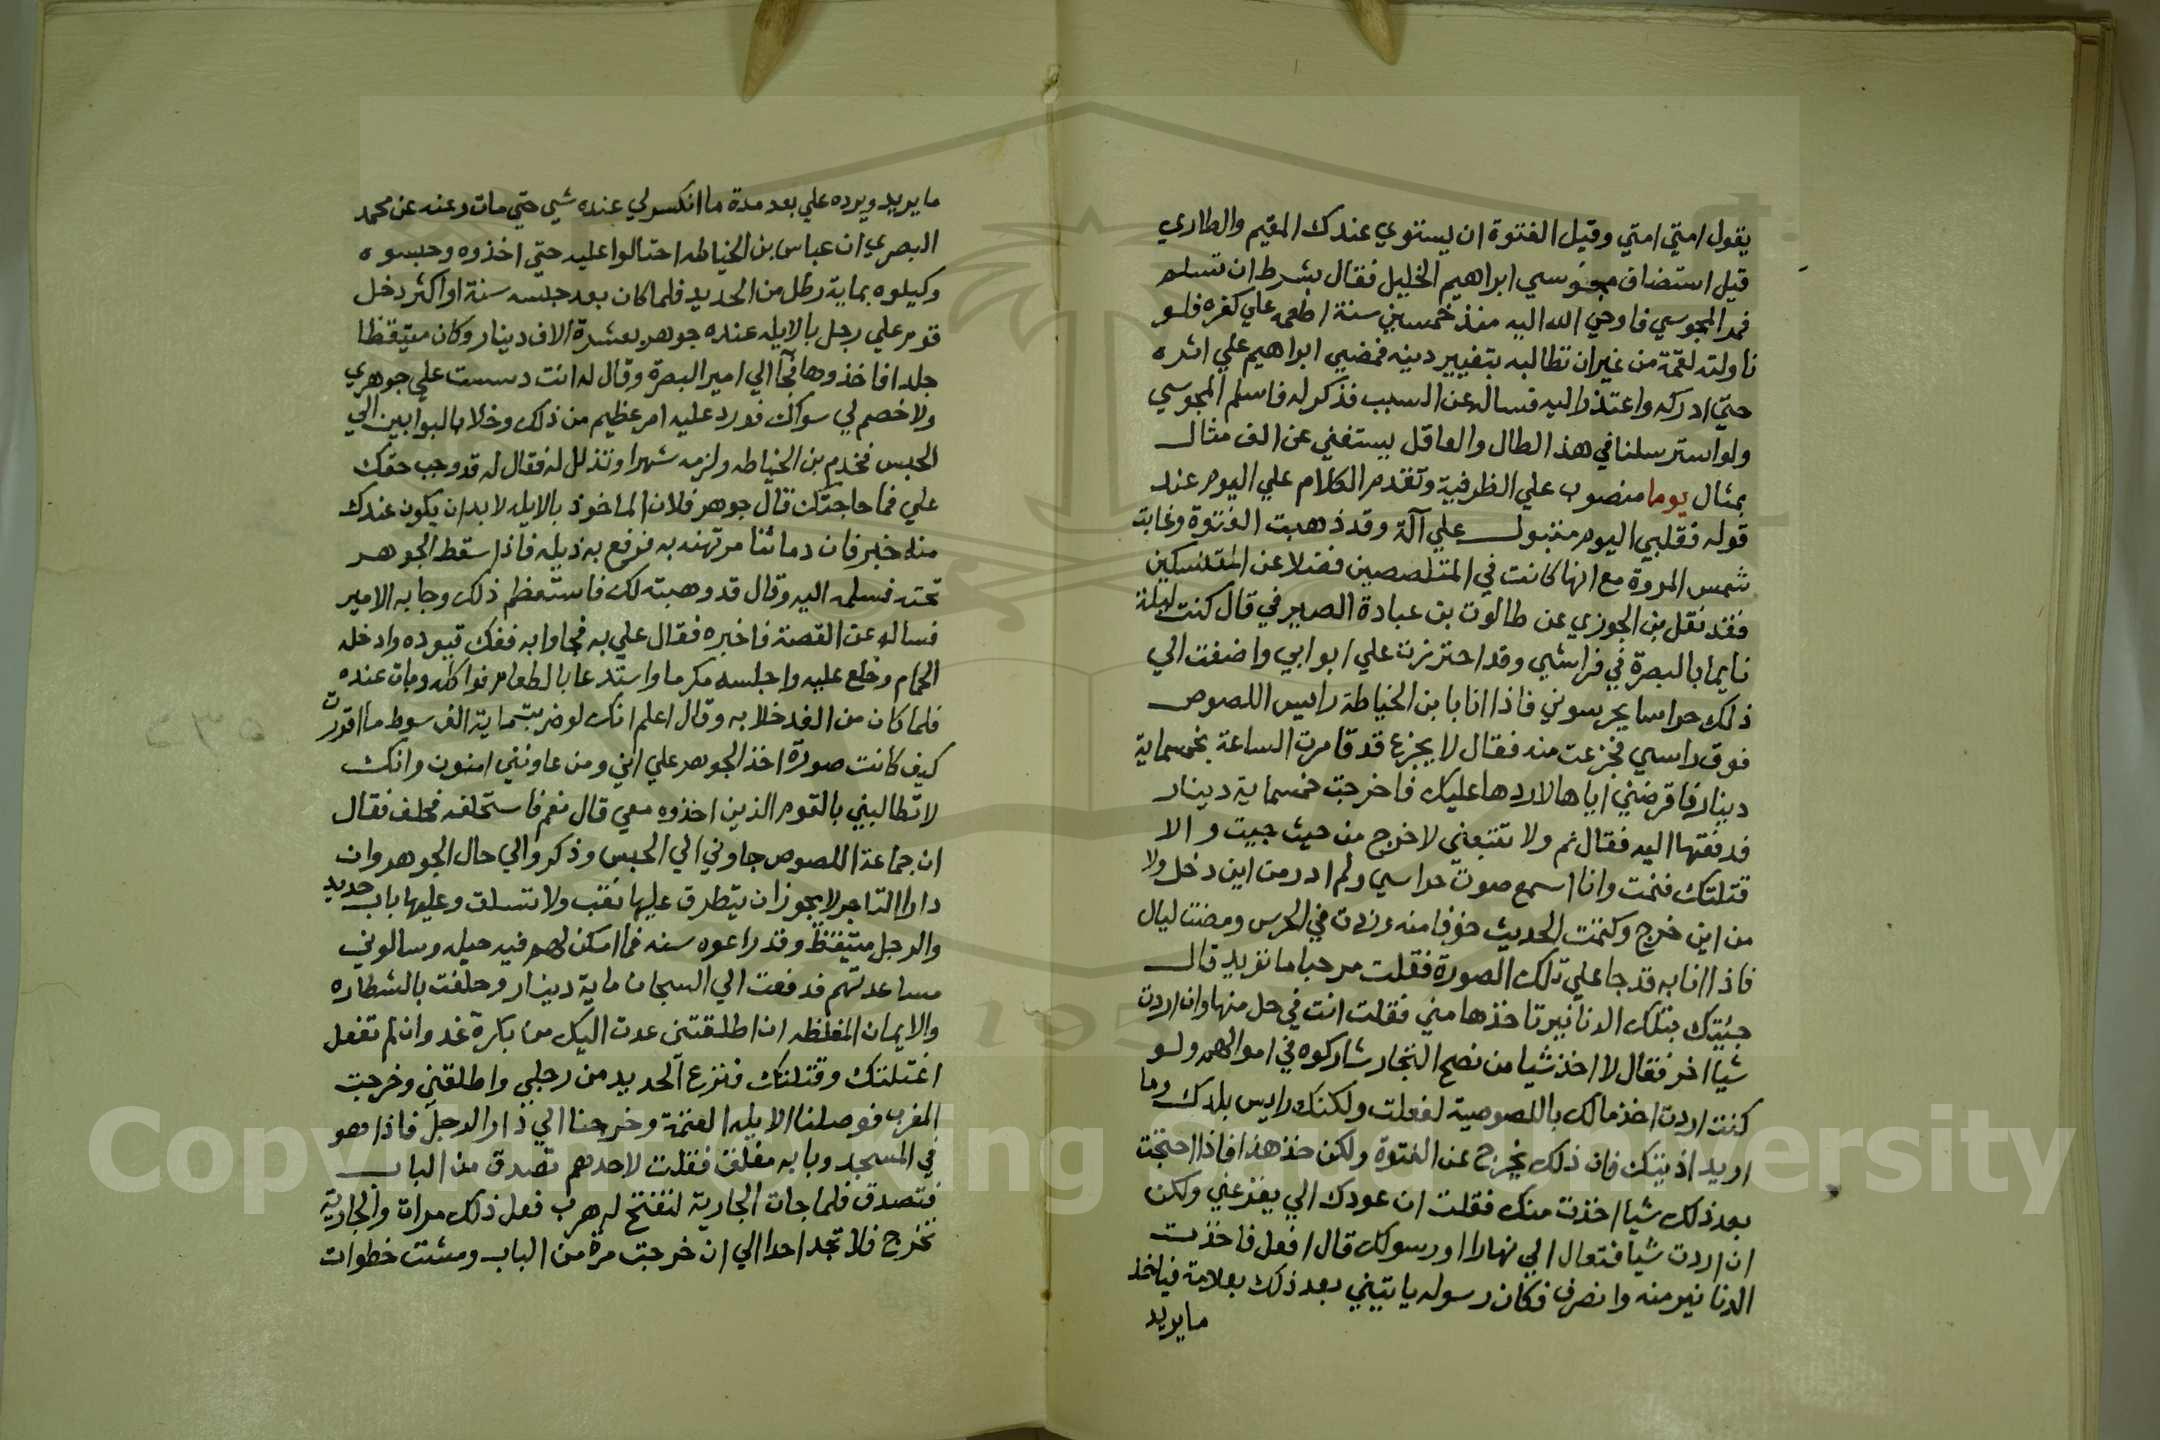 يقول امتي امتي وقيل الفتوة ان يستوي عندك المقيم والطاري
قيل استضاف مجوسي ابراهيم الخليل فقال بشرط ان تسلم
فمر المجوسي فاوحي الله اليه منذ خمسين سنة اطعمه علي كفره فلو
ناولته لقمة من غير ان تطالبه بتغيير دينه فمضي ابراهيم علي اثره
حتي ادركه واعتذر اليه فساله عن السبب فذكر له فاسلم المجوسي
ولو استرسلنا في هذا لطال والعاقل يستغني عن الف مثال
بمثال يوما منصوب علي الظرفية وتقدم الكلام علي اليوم عند
قوله فقلبي اليوم متبول علي آلة وقد ذهبت الفتوة وغابت
شمس المروة مع انها كانت في المتلصصين فضلا عن المتنسكين
فقد نقل بن الجوزي عن طالوت بن عبادة الصيرفي قال كنت ليلة
نايما بالبصرة في فراشي وقد احترزت علي ابوابي واضفت الي
ذلك حراسا يحرسوني فاذا انا بابن الخياطة راييس اللصوص
فوق راسي فجزعت منه فقال لا يجزع قد قامرت الساعة بخمسماية
دينار فاقرضني اياها لاردها عليك فاخرجت خمسماية دينار
فدفعتها اليه فقال نم ولا تتبعني لاخرج من حيث جيت والا
قتلتك فنمت وانا اسمع صوت حراسي ولم ادر من اين دخل ولا
من اين خرج وكتمت الحديث خوفا منه وزدت في الحرس ومضت ليال
فاذا انا به قد جا علي تلك الصورة فقلت مرحبا ما تريد قال
جئيتك بتلك الدنانير تاخذها مني فقلت انت في حل منها وان اردت
شيا اخر فقال لا اخذ شيا من نصح التجار شاركوه في اموالهم ولو
كنت اردت اخذ مالك باللصوصية لفعلت ولكنك راييس بلدك وما
اريد اذيتك فان ذلك يخرج عن الفتوة ولكن خذ هذا فاذا احتجت
بعد ذلك شيا اخذت منك فقلت ان عودك الي يفزعني ولكن
ان اردت شيا فتعال الي نهارا او رسولك قال افعل فاخذت
الدنانير منه وانصرف فكان رسوله ياتيني بعد ذلك بعلامة فياخذ
مايريد
ما يريد ويرده علي بعد مدة ما انكسر لي عنده شي حتي مات وعنه عن محمد
البصري ان عباس بن الخياطه احتالوا عليه حتي اخذوه وحبسوه
وكيلوه بماية رطل من الحديد فلما كان بعد جلسه سنة او اكثر دخل
قوم علي رجل بالابله عنده جوهر بعشرة الاف دينار وكان متيقظا
جلدا فاخذوها فجآ الي امير البصرة وقال له انت دسست علي جوهري
ولا خصم لي سواك فورد عليه امر عظيم من ذلك وخلا بالبوابين الي
الحبس فخدم بن الخياطه ولزمه شهرا وتذلل له فقال له قد وجب حقك
علي فما حاجتك فقال جوهر فلان الماخوذ بالابله لابد ان يكون عندك
منه خبر فان دمائنا مرتهنه به فرفع به ذيله فاذا سقط الجوهر
تحته فسلمه اليه وقال قد وهبته لك فاستعظم ذلك وجا به الامير
فساله عن القصة فاخبره فقال علي به فجاوا به ففك قيوده وادخله
الحمام وخلع عليه واجلسه مكرما واستدعا بالطعام فواكله وبات عنده
فلما كان من الغد خلا به وقال اعلم انك لو ضربت بماية الف سوط ما اقررت
كيف كانت صورة اخذ الجوهر علي اني ومن عاونني امنون وانك
لا تطالبني بالقوم الذين اخذوه معي قال نعم فاستحلفه فحلف فقال
ان جماعة اللصوص جاوني الي الحبس وذكروا لي حال الجوهر وان
دار التاجر لا يجوز ان يتطرق عليها نقب ولا تسلق وعليها باب حديد
والرجل متيقظ وقد راعوه سنه فما امكن لهم فيه حيله وسالوني
مساعدتهم فدفعت الي السجان ماية دينار وحلفت بالشطاره
والايمان المغلظه ان اطلقتني عدت اليك من بكرة غد وان لم تفعل
اغتلتك وقتلتك فنزع الحديد من رجلي واطلقني وخرجت
المغرب فوصلنا الابله العتمة وخرجنا الي دار الرجل فاذا هو
في المسجد وبابه مغلق فقلت لاحدهم تصدق من الباب
فتصدق فلما جات الجارية لتفتح له هرب فعل ذلك مرات والجارية
تخرج فلا تجد احدا الي ان خرجت مرة من الباب ومشت خطوات